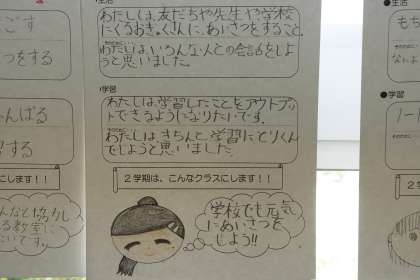 ごす
つをする
んばる
習する
にします！！
んなと協力し
る教室に
いです。
●生活
わたしは、友だちや先生や学校
にくるお客さんにあいさつをすること。
わたしは、いろんな人との会話をしよ
うと思いました。
●学習
わたしは、学習したことをアウトプッ
トできるようになりたいです。
わたしはきちんと、学習にとりくん
でしようと思いました。
２学期は、こんなクラスにします！！
学校でも元気
にあいさつを
しよう!!
●生活
もち
●学習
２学